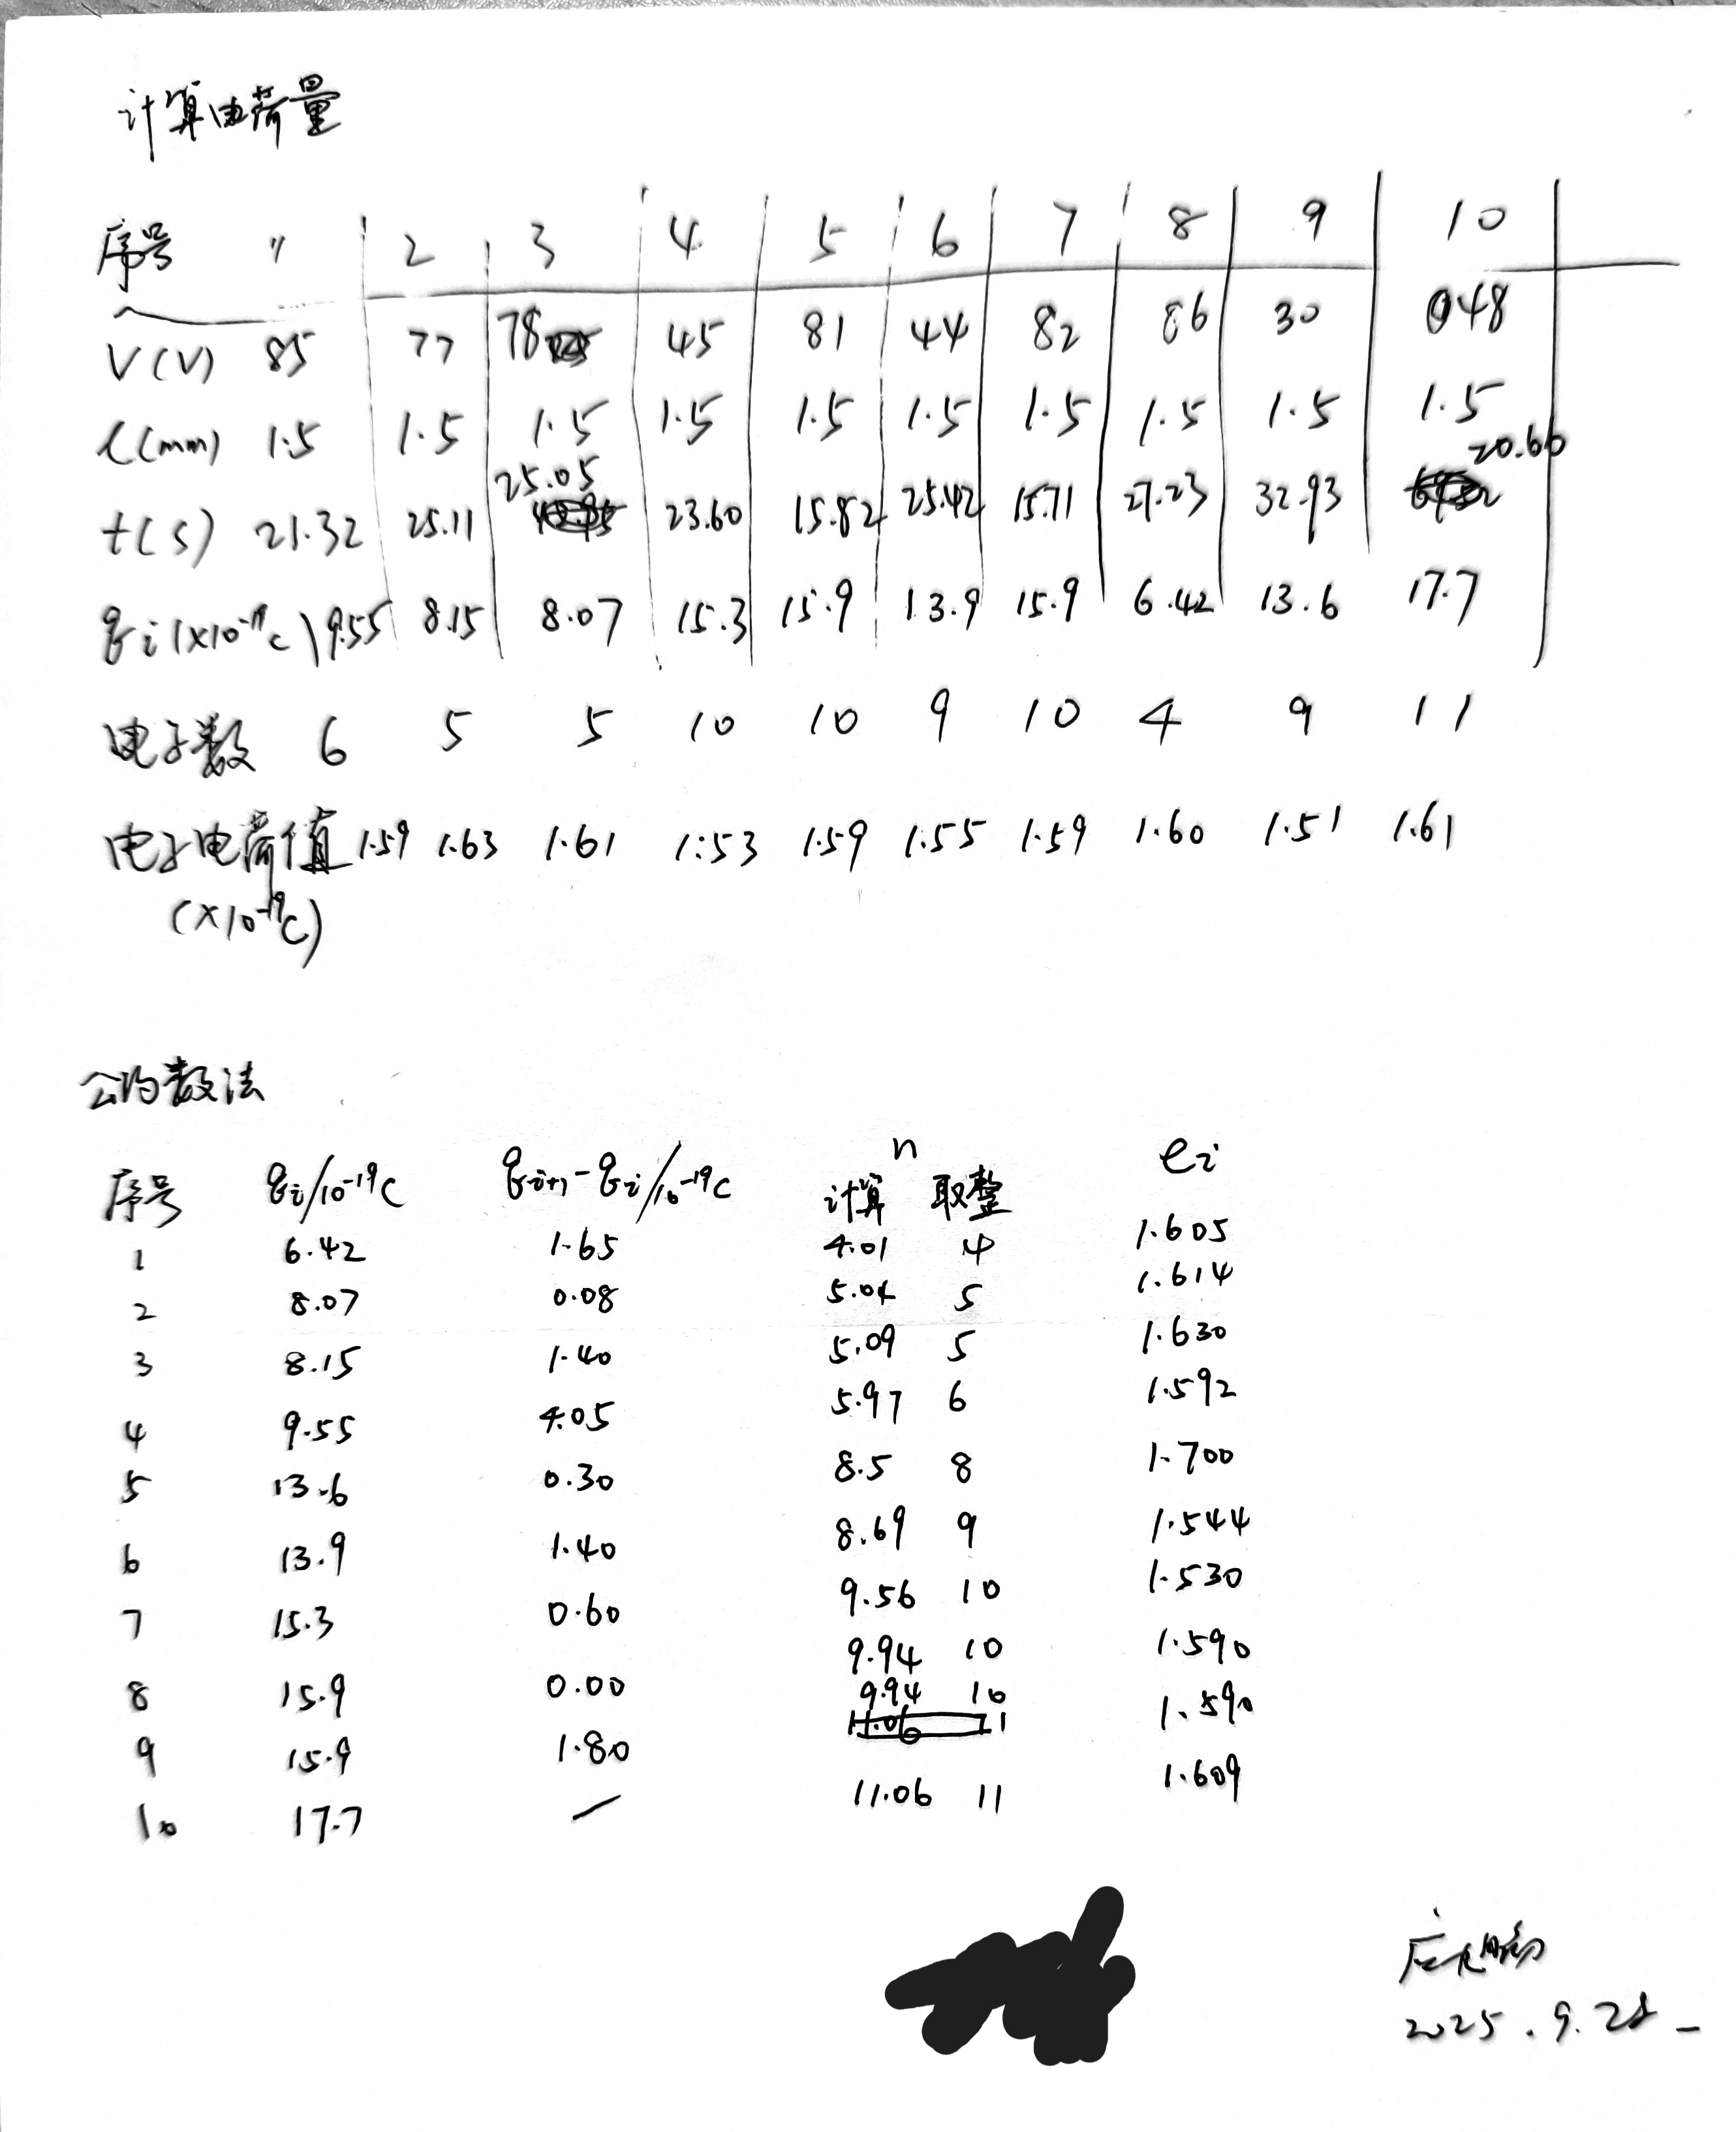 计算电荷量
序号 1 2 3 4 5 6 7 8 9 10
V(V) 85 77 78 45 81 44 82 86 30 048
l(mm) 1.5 1.5 1.5 1.5 1.5 1.5 1.5 1.5 1.5 1.5
t(s) 21.32 25.11 25.05 23.60 15.82 25.42 15.71 27.23 32.93 20.66
qi(×10⁻¹⁹c) 9.55 8.15 8.07 15.3 15.9 13.9 15.9 6.42 13.6 17.7
电子数 6 5 5 10 10 9 10 4 9 11
电子电荷值 1.59 1.63 1.61 1.53 1.59 1.55 1.59 1.60 1.51 1.61
(×10⁻¹⁹C)
公约数法
n
序号 qi/10⁻¹⁹C qi+1-qi/10⁻¹⁹C 计算 取整 ei
1 6.42 1.65 4.01 4 1.605
2 8.07 0.08 5.04 5 1.614
3 8.15 1.40 5.09 5 1.630
4 9.55 4.05 5.97 6 1.592
5 13.6 0.30 8.5 8 1.700
6 13.9 1.40 8.69 9 1.544
7 15.3 0.60 9.56 10 1.530
8 15.9 0.00 9.94 10 1.590
9 15.9 1.80 9.94 10 1.590
10 17.7 — 11.06 11 1.609
2025.9.28